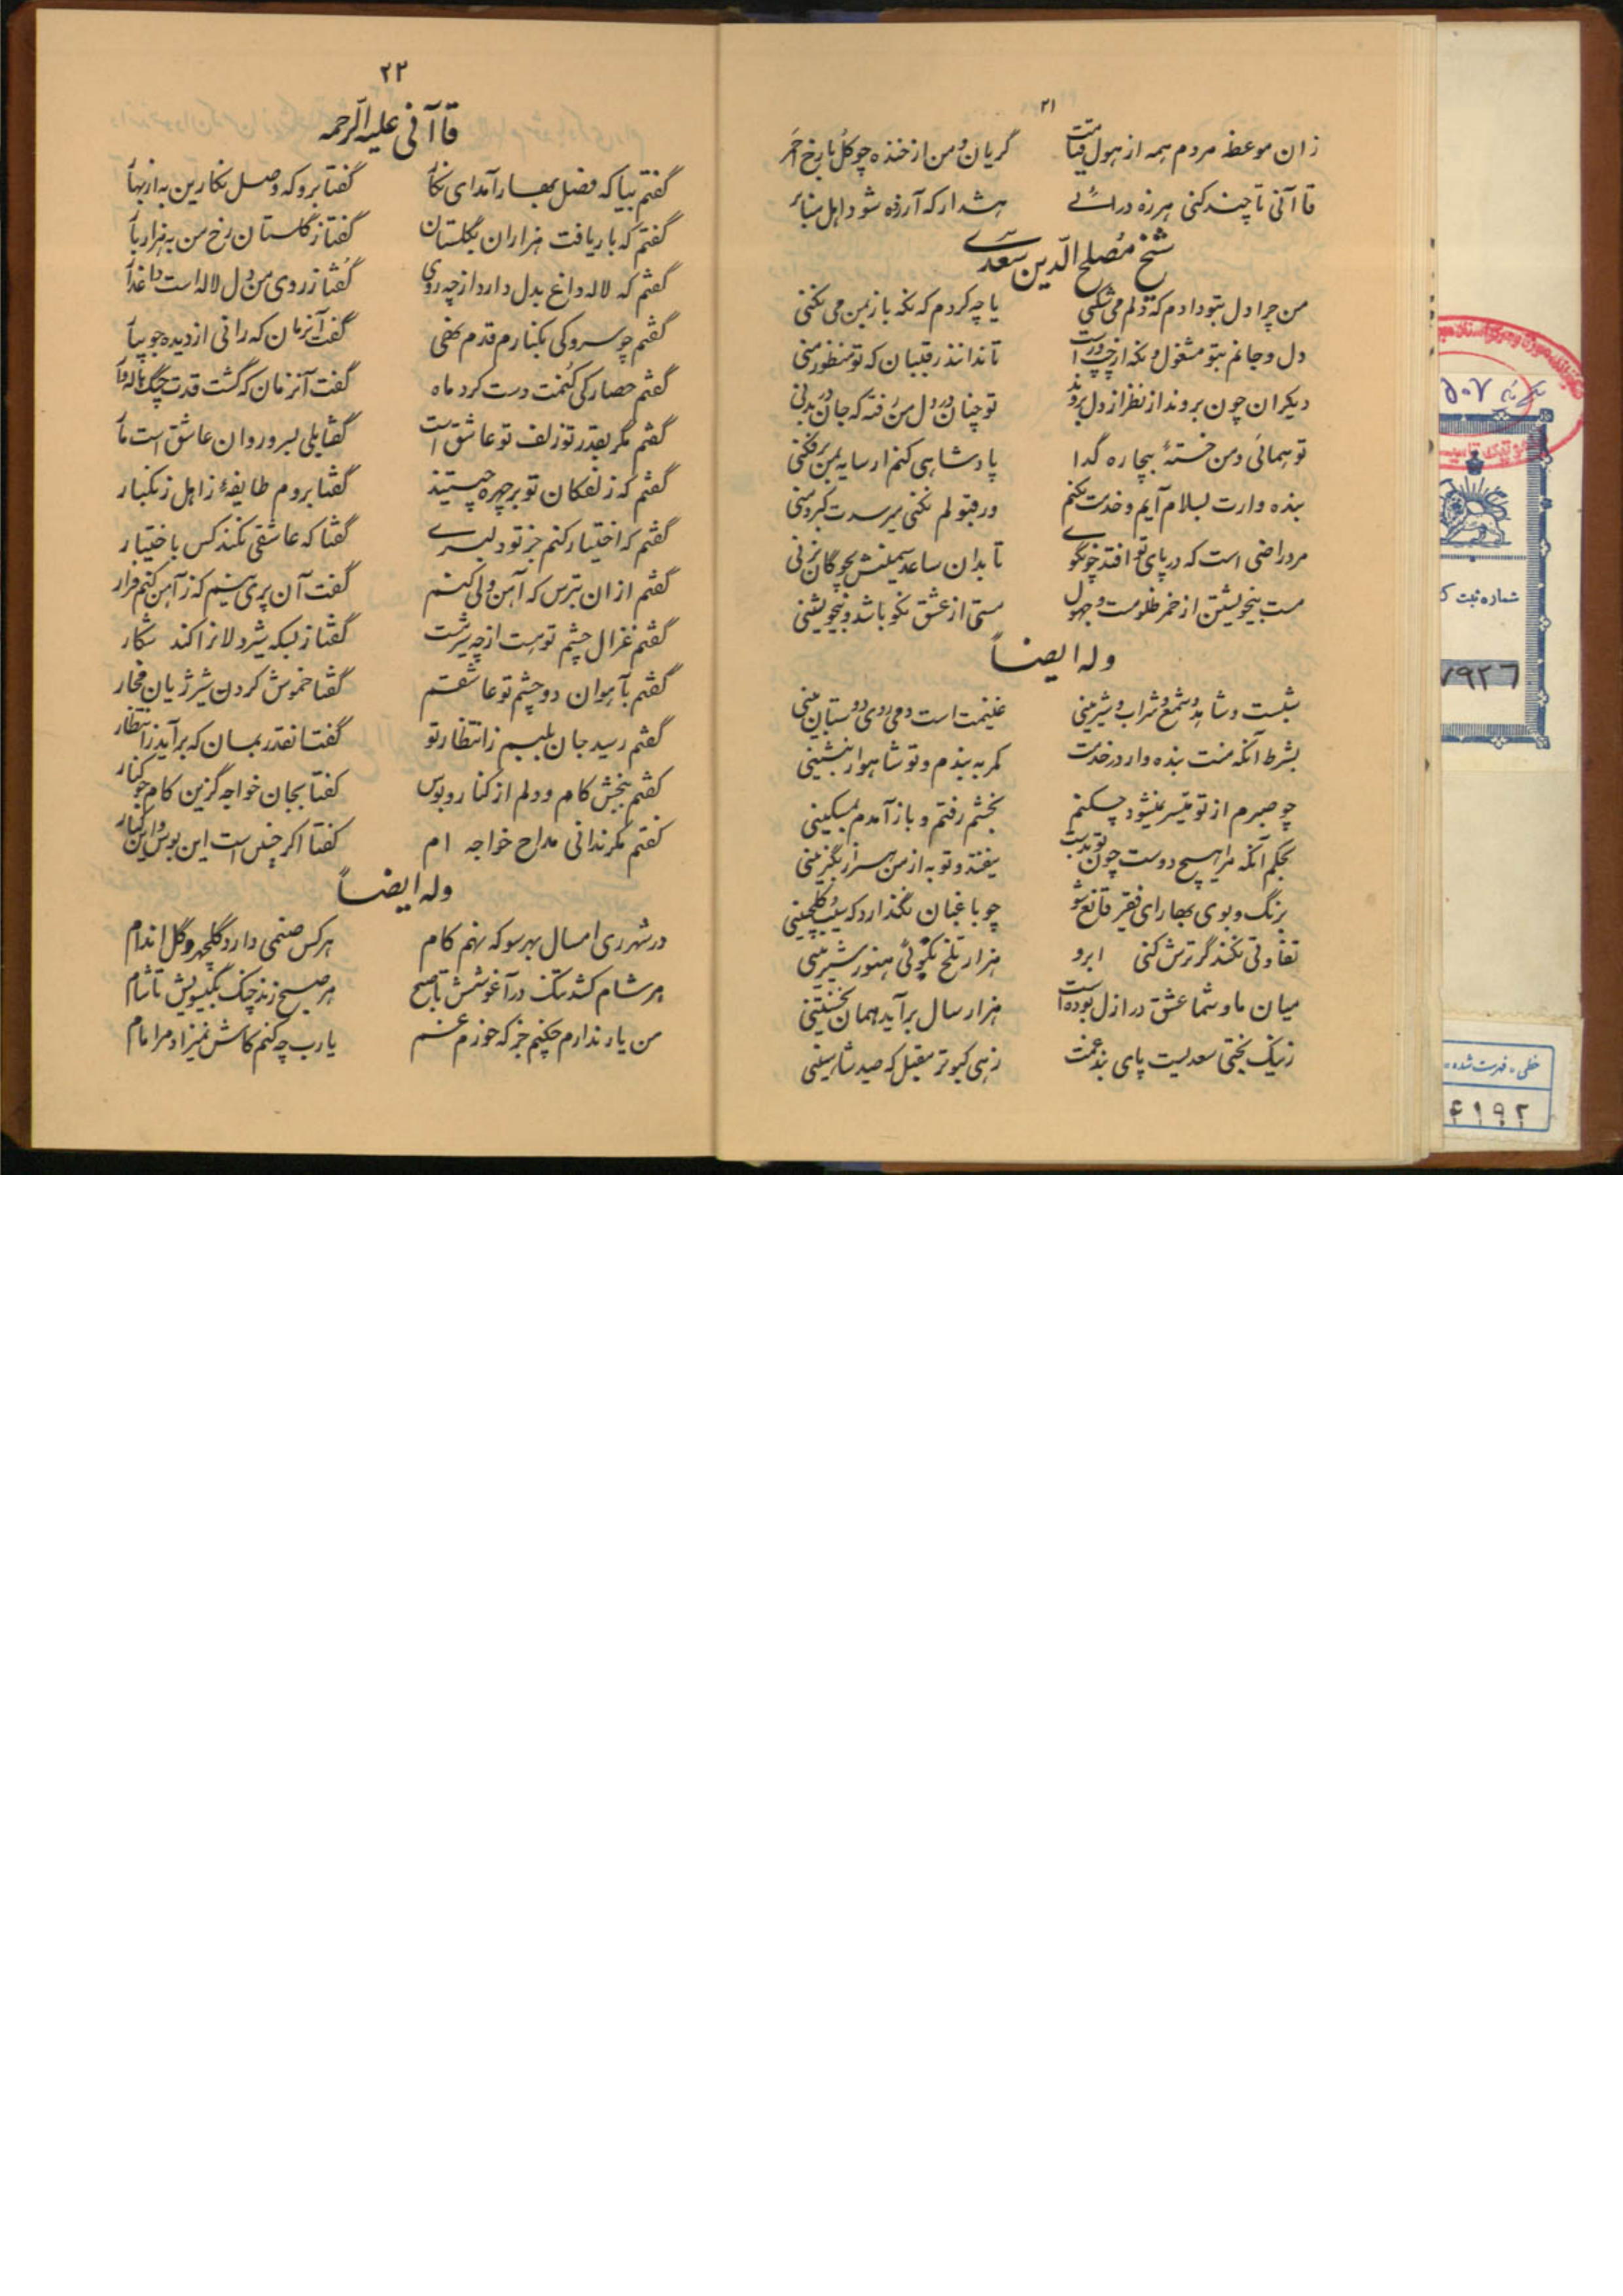 ۲۱
زان موعظه مردم همه از هول قیامت گریان و من از خنده چو گل با رخ احمر
قاآنی تا چند کنی هرزه درائی هشدار که آزرده شود اهل منابر
شیخ مصلح الدین سعدی
من چرا دل بتو دادم که دلم می شکنی یا چه کردم که نگه باز بمن می نکنی
دل و جانم بتو مشغول و نگه از چپ و راست تا ندانند رقیبان که تو منظور منی
دیگران چون بروند از نظر از دل بروند تو چنان در دل من رفته که جان در بدنی
تو همائی و من خستهٔ بیچاره گدا پادشاهی کنم ار سایه بمن برفکنی
بنده وارت بسلام آیم و خدمت بکنم ور قبولم نکنی میرسدت کبر و منی
مرد راضی است که در پای تو افتد چو گوی تا بدان ساعد سیمینش بچوگان بزنی
مست بیخویشتن از خمر ظلومست و جهول مستی از عشق نکو باشد و بیخویشتنی
وله ایضاً
شبست و شاهد و شمع و شراب و شیرینی غنیمت است دمی روی دوستان بینی
بشرط آنکه منت بنده وار در خدمت کمر به بندم و تو شاهوار بنشینی
چو صبرم از تو میسر نمیشود چکنم بخشم رفتم و باز آمدم بمسکینی
بحکم آنکه مرا هیچ دوست چون تو بدست نیفتد و تو به از من هزار بگزینی
برنگ و بوی بهار ای فقیر قانع شو چو باغبان نگذارد که سیب و گل چینی
تفاوتی نکند گر ترش کنی ابرو هزار تلخ بگوئی هنوز شیرینی
میان ما و شما عشق در ازل بوده است هزار سال برآید همان نخستینی
ز نیک بختی سعدیست پای بند غمت زهی کبوتر مقبل که صید شاهینی
۲۲
قاآنی علیه الرحمه
گفتم بیا که فصل بهار آمد ای نگار گفتا برو که وصل نگارین به از بهار
گفتم که بار یافت هزاران بگلستان گفتا ز گلستان رخ من به هزار بار
گفتم که لاله داغ بدل دارد از چه روی گفتا ز روی من دل لاله است داغدار
گفتم چو سرو کی بکنارم قدم نهی گفت آنزمان که رانی از دیده جویبار
گفتم حصار کی کنمت دست گرد ماه گفت آنزمان که گشت قدت چنگ هاله وار
گفتم مگر بقدر تو زلف تو عاشق است گفتا بلی بسرو روان عاشق است مار
گفتم که زلفکان تو بر چهره چیستند گفتا بروم طایفهٔ ز اهل زنگبار
گفتم که اختیار کنم جز تو دلبری گفتا که عاشقی نکند کس باختیار
گفتم از آن بترس که آهن دلی کنم گفت آن پری منم که ز آهن کنم فرار
گفتم غزال چشم تو مست از چه شیر شست گفتا ز بسکه شیردلانرا کند شکار
گفتم بآهوان دو چشم تو عاشقم گفتا خموش کردن شیر ژیان مخار
گفتم رسید جان بلبم ز انتظار تو گفتا نقدر بمان که برآید ز انتظار
گفتم ببخش کام دلم از کنار و بوس گفتا بجان خواجه گزین کام جو کنار
گفتم مگر ندانی مداح خواجه ام گفتا اگر چنین است این بوس و این کنار
وله ایضاً
در شهر ری امسال بهر سو که نهم کام هر کس صنمی دارد گلچهر و گل اندام
هر شام کشد تنگ در آغوشش تا صبح هر صبح زند چنگ بگیسویش تا شام
من یار ندارم چکنم جز که خورم غم یا رب چه کنم کاش نمیزاد مرا مام
۵۰۷
شماره ثبت
۷۹۲۶
خطی - فهرست شده
۴۱۹۲